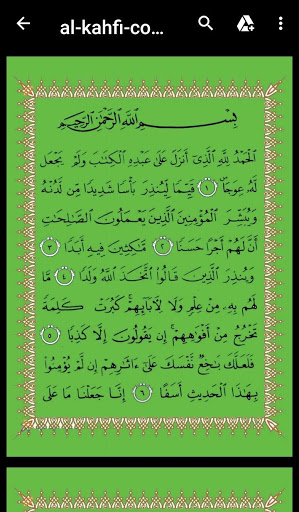 al-kahfi-co...
بِسْمِ اللَّهِ الرَّحْمَٰنِ الرَّحِيمِ
الْحَمْدُ لِلَّهِ الَّذِي أَنزَلَ عَلَىٰ عَبْدِهِ الْكِتَابَ وَلَمْ يَجْعَل
لَّهُ عِوَجًا ﴿١﴾ قَيِّمًا لِّيُنذِرَ بَأْسًا شَدِيدًا مِّن لَّدُنْهُ
وَيُبَشِّرَ الْمُؤْمِنِينَ الَّذِينَ يَعْمَلُونَ الصَّالِحَاتِ
أَنَّ لَهُمْ أَجْرًا حَسَنًا ﴿٢﴾ مَّاكِثِينَ فِيهِ أَبَدًا ﴿٣﴾
وَيُنذِرَ الَّذِينَ قَالُوا اتَّخَذَ اللَّهُ وَلَدًا ﴿٤﴾ مَّا
لَهُم بِهِ مِنْ عِلْمٍ وَلَا لِآبَائِهِمْ ۚ كَبُرَتْ كَلِمَةً
تَخْرُجُ مِنْ أَفْوَاهِهِمْ ۚ إِن يَقُولُونَ إِلَّا كَذِبًا ﴿٥﴾
فَلَعَلَّكَ بَاخِعٌ نَّفْسَكَ عَلَىٰ آثَارِهِمْ إِن لَّمْ يُؤْمِنُوا
بِهَٰذَا الْحَدِيثِ أَسَفًا ﴿٦﴾ إِنَّا جَعَلْنَا مَا عَلَى